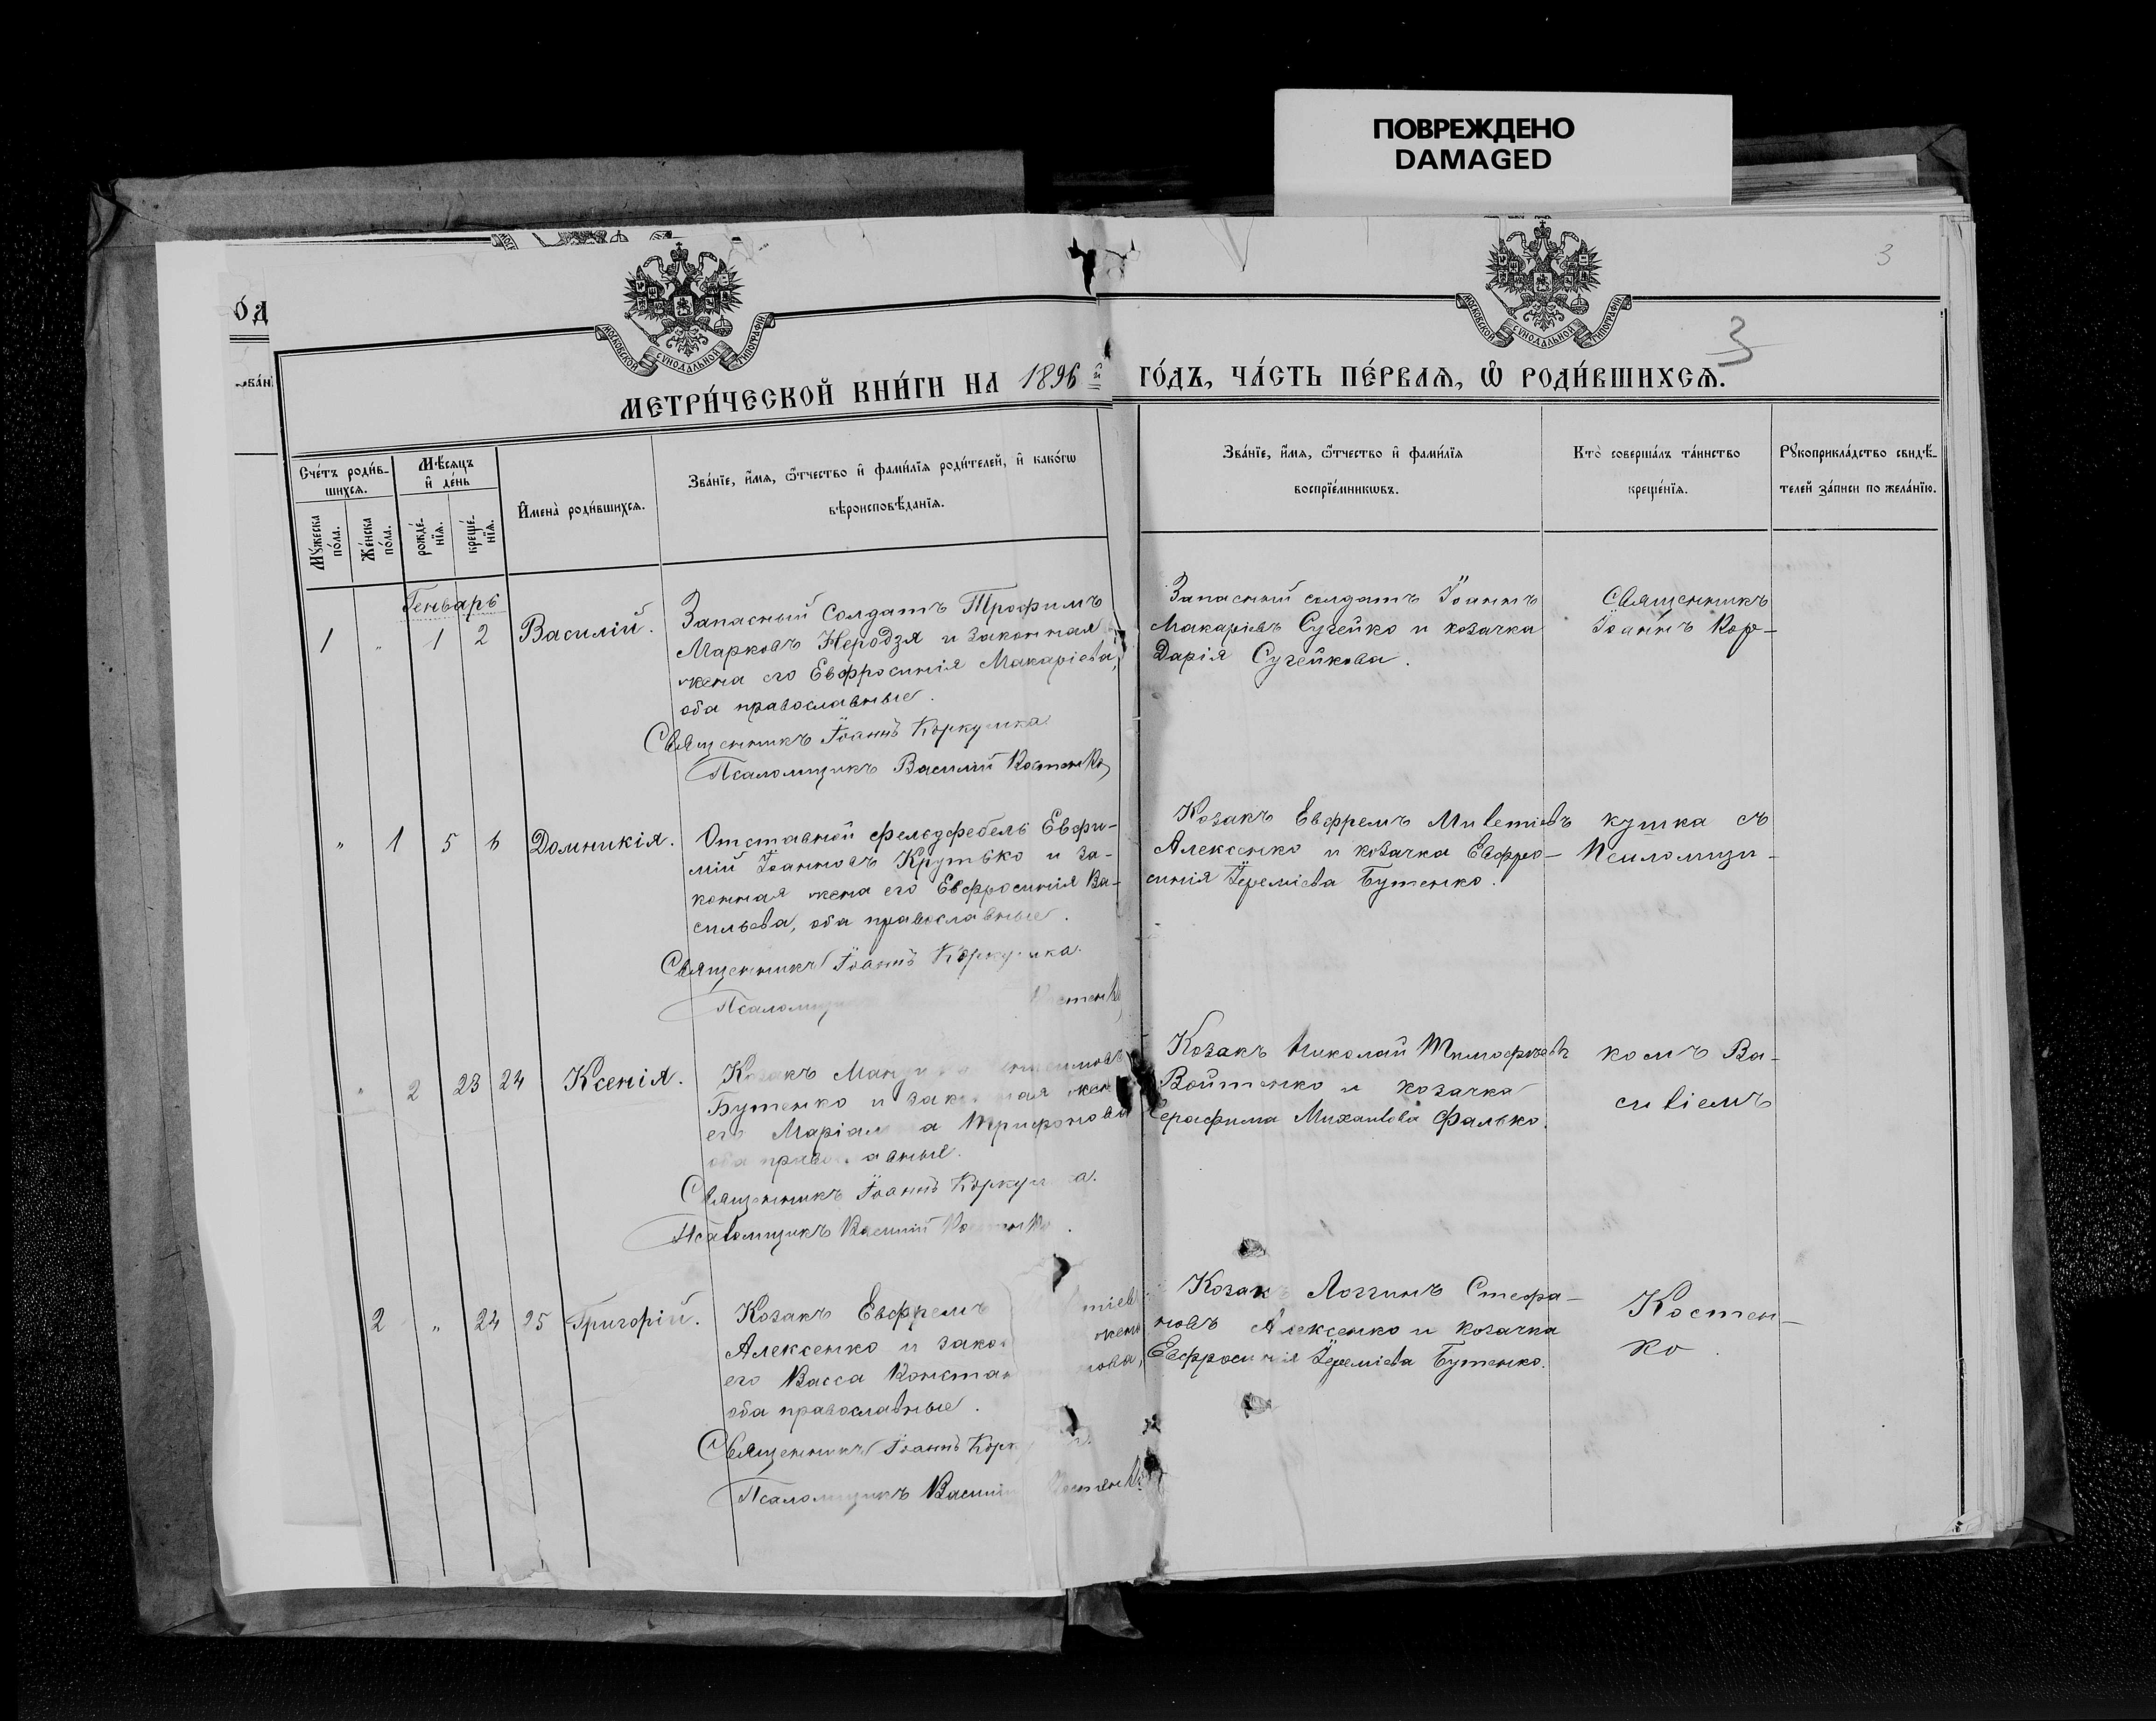 ПОВРЕЖДЕНО
DAMAGED
о́д
3
3
МОСКОВСКОЙ СУНОДАЛЬНОЙ ТИПОГРАФІИ
МОСКОВСКОЙ СУНОДАЛЬНОЙ ТИПОГРАФІИ
МЕТРИ́ЧЕСКОЙ КНИ́ГИ НА 1896й ГО́ДЪ, ЧА́СТЬ ПЕ́РВАѦ, Ѿ РОДИ́ВШИХСѦ.
Сче́тъ роди́в-
шихсѧ.
Мꙋ́жеска по́ла.
Же́нска по́ла.
Мѣ́сѧцъ и҆ де́нь
рожде́-
нїѧ.
креще́-
нїѧ.
И҆мена̀ роди́вшихсѧ.
Зва́нїе, и҆́мѧ, ѻ҆́тчество и҆ фами́лїѧ роди́телей, и҆ како́гѡ
вѣроисповѣ́данїѧ.
Зва́нїе, и҆́мѧ, ѻ҆́тчество и҆ фами́лїѧ
воспрїе́мникѡвъ.
Кто̀ соверша́лъ та́инство
креще́нїѧ.
Рꙋкоприкла́дство свидѣ́-
телей за́писи по жела́нїю.
Генварь
1 „ 1 2 Василій.
Запасный Солдатъ Трофимъ
Марковъ Неродзя и законная
жена его Евфросинія Макаріева,
оба православные.
Священникъ Іоаннъ Коркушка
Псаломщикъ Василій Костенко
Запасный солдатъ Іоаннъ
Макаріевъ Сугейко и козачка
Дарія Сугейкова.
Священникъ
Іоаннъ Кор-
„ 1 5 6 Домникія.
Отставной фельдфебель Евфи-
мій Іоанновъ Крутько и за-
конная жена его Евфросинія Ва-
сильева, оба православные.
Священникъ Іоаннъ Коркушка
Псаломщик Костенко
Козакъ Евфремъ Милетіевъ
Алексенко и козачка Евфро-
синія Іереміева Бутенко.
кушка съ
Псаломщи-
„ 2 23 24 Ксенія.
Козакъ
Бутенко и законная жена
его Маріамна Трифонова
оба православные.
Священникъ Іоаннъ Коркушка.
Псаломщикъ Василій Костенко.
Козакъ Николай Тимофеевъ
Войтенко и козачка
Серафима Михаилова Фалько.
комъ Ва-
силіемъ
2 „ 24 25 Григорій.
Козакъ Евфремъ тіев
Алексенко и зако жена
его Васса Констан нова,
оба православные.
Священникъ Іоаннъ Корк
Псаломщикъ Василій Костенко
Козакъ Логгинъ Стефа-
новъ Алексенко и козачка
Евфросинія Іереміева Бутенко.
Костен-
ко.